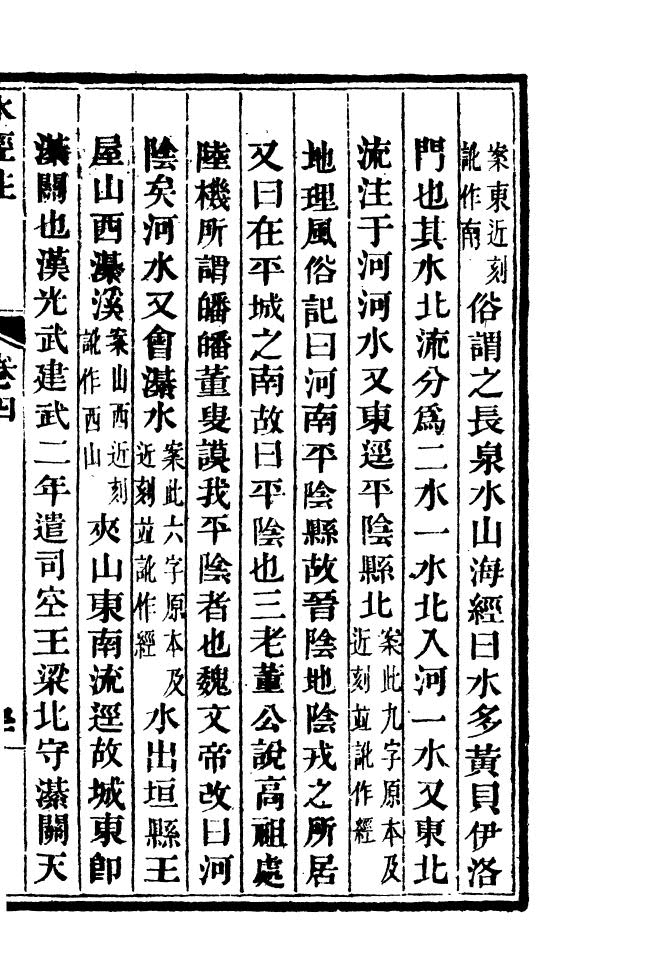 案東近刻訛作南俗謂之長泉水山海經曰水多黃貝伊洛
門也其水北流分爲二水一水北入河一水又東北
流注于河河水又東逕平陰縣北案此九字原本及近刻並訛作經
地理風俗記曰河南平陰縣故晉陰地陰戎之所居
又曰在平城之南故曰平陰也三老董公說高祖處
陸機所謂皤皤董叟謨我平陰者也魏文帝改曰河
陰矣河水又會濝水案此六字原本及近刻並訛作經水出垣縣王
屋山西濝溪案山西近刻訛作西山夾山東南流逕故城東卽
濝關也漢光武建武二年遣司空王梁北守濝關天
水經注 卷四